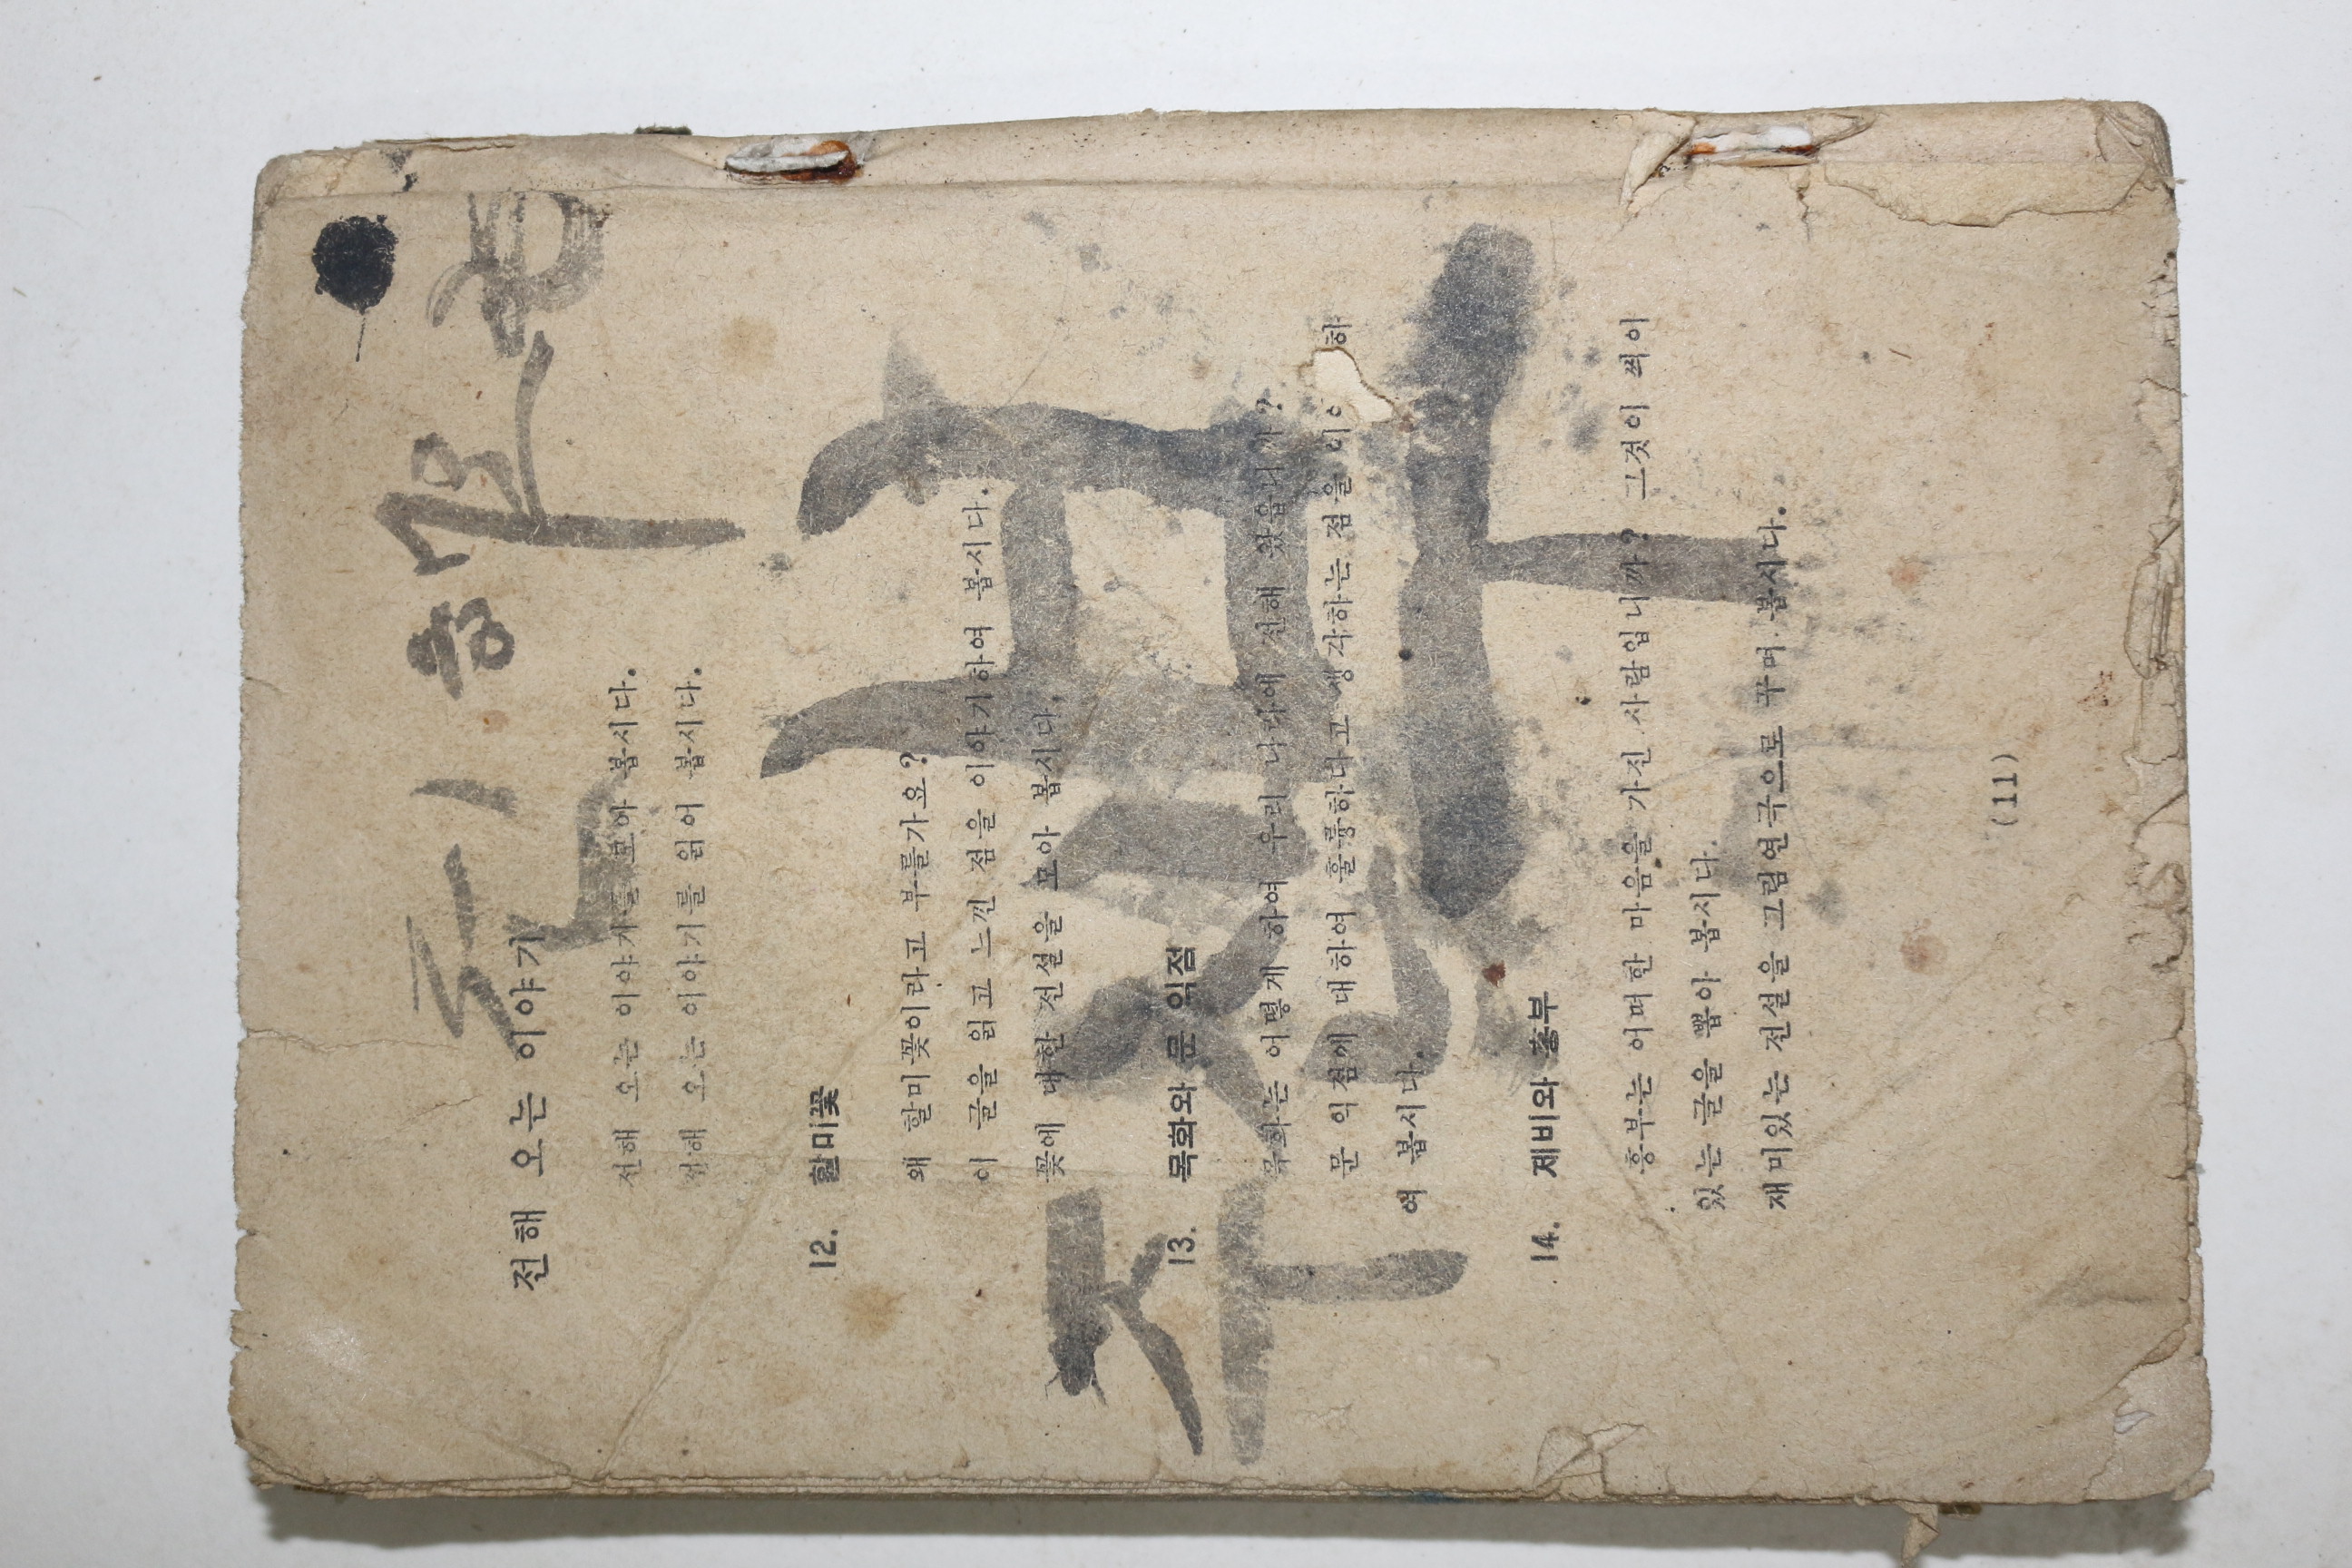 전해 오는 이야기
전해 오는 이야기를 모아 봅시다.
전해 오는 이야기를 읽어 봅시다.
12. 할미꽃
왜 할미꽃이라고 부를가요?
이 글을 읽고 느낀 점을 이야기하여 봅시다.
꽃에 대한 전설을 모아 봅시다.
13. 목화와 문 익점
목화는 어떻게 하여 우리 나라에 전해 왔읍니까?
문 익점에 대하여 훌륭하다고 생각하는 점을 이야 하
여 봅시다.
14. 제비와 흥부
흥부는 어떠한 마음을 가진 사람입니까? 그것이 씌이
있는 글을 뽑아 봅시다.
재미있는 전설을 그림연극으로 꾸며 봅시다.
(11)